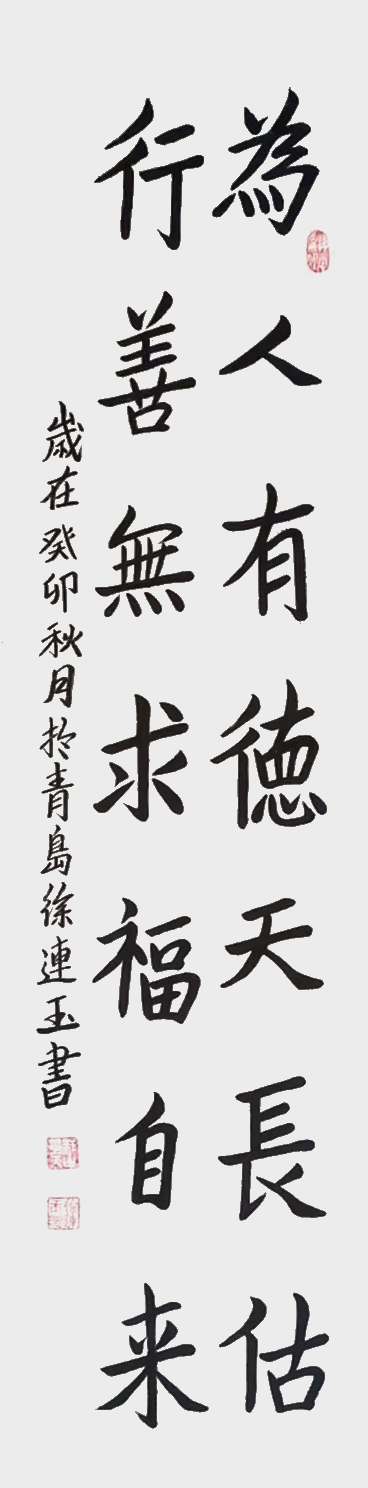 為人有徳天長估
行善無求福自来
歲在癸卯秋月扵青島徐連玉書